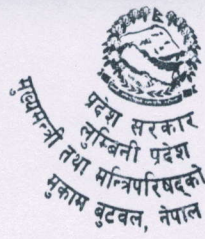 प्रदेश सरकार
लुम्बिनी प्रदेश
मुख्यमन्त्री तथा मन्त्रिपरिषद्को
मुकाम बुटवल, नेपाल